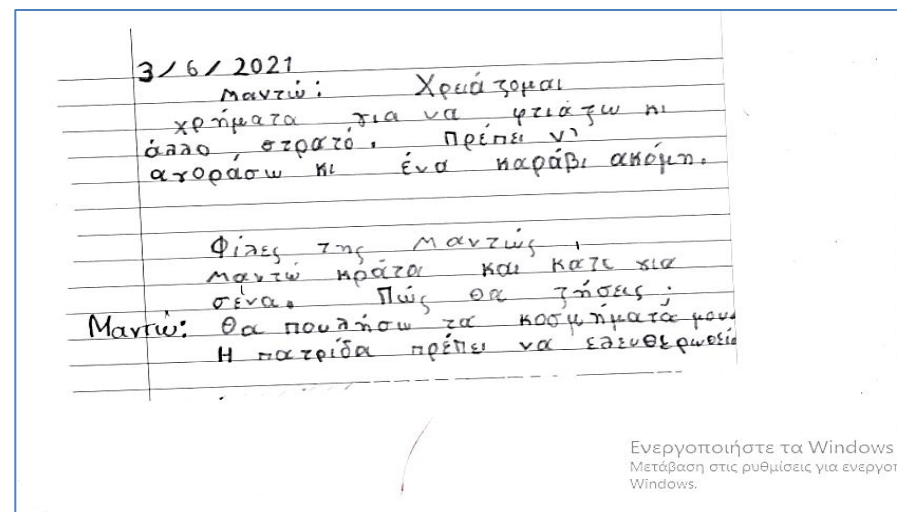 3/6/2021
Μαντώ: Χρειάζομαι
χρήματα για να φτιάξω κι
άλλο στρατό. Πρέπει ν'
αγοράσω κι ένα καράβι ακόμη.
Φίλες της Μαντώς,
Μαντώ κράτα και κάτι για
σένα. Πώς θα ζήσεις;
Μαντώ: Θα πουλήσω τα κοσμήματά μου.
Η πατρίδα πρέπει να ελευθερωθεί
Ενεργοποιήστε τα Windows
Μετάβαση στις ρυθμίσεις για
Windows.